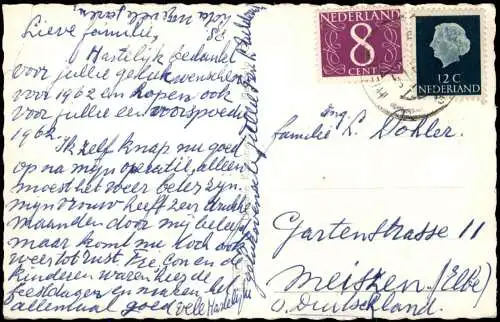 Lieve familie,
Hartelijk bedankt
voor jullie gelukwenschen
voor 1962 en hopen ook
voor jullie een voorspoedig
1962.
Ik zelf knap nu goed
op na mijn operatie, alleen
moest het weer beter zijn.
mijn vrouw heeft zeer drukke
maanden door mij beleefd
maar komt nu toch ook
weer tot rust. en de
kinderen waren hier de
feestdagen en maken het
allemaal goed vele Hartelijke
NEDERLAND
8
CENT
12 C
NEDERLAND
Ing.
familie L. Dohler.
Gartenstrasse 11
Meiszen (Elbe)
O. Deutschland.